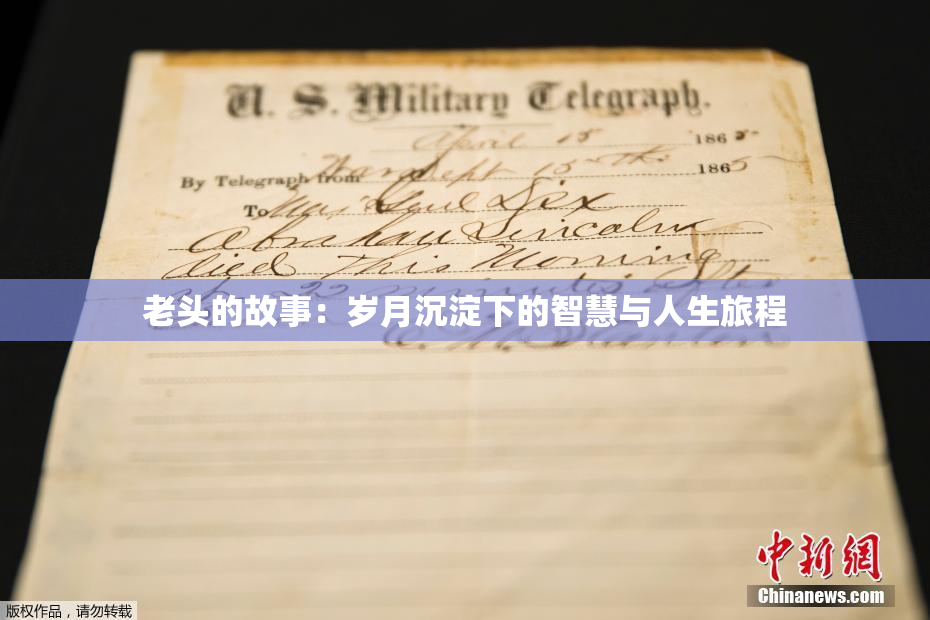 U. S. Military Telegraph.
April 15 1865
By Telegraph from War Dept 15th 1865
To Maj Genl Dix
Abraham Lincoln
died This Morning
22 minutes after
老头的故事：岁月沉淀下的智慧与人生旅程
E. M. Stanton
中新网
Chinanews.com
版权作品，请勿转载